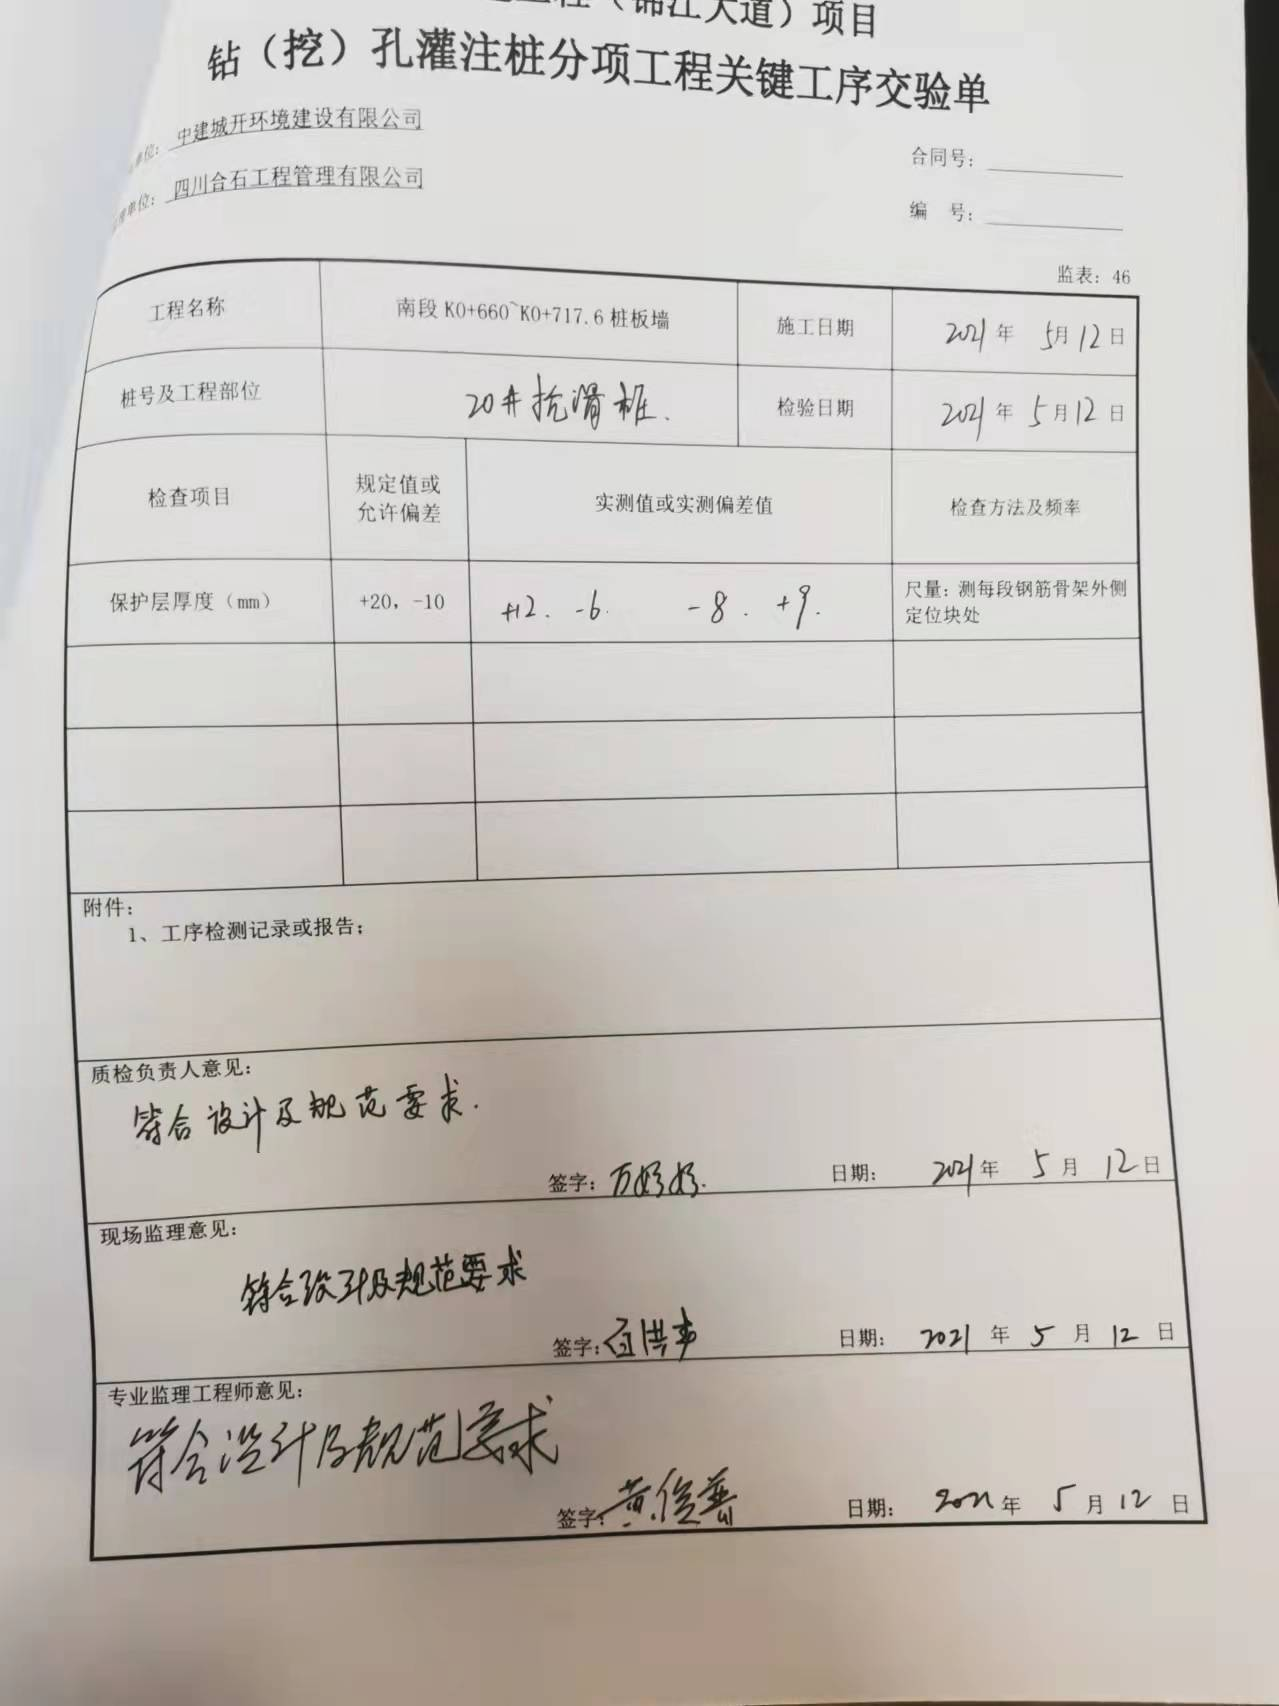 工程（锦江大道）项目
钻（挖）孔灌注桩分项工程关键工序交验单
单位：中建城开环境建设有限公司
合同号：
单位：四川合石工程管理有限公司
编 号：
监表：46
工程名称 南段 K0+660~K0+717.6 桩板墙 施工日期 2021年 5月12日
桩号及工程部位 20#抗滑桩. 检验日期 2021年 5月12日
检查项目 规定值或允许偏差 实测值或实测偏差值 检查方法及频率
保护层厚度（mm） +20，-10 +12. -6. -8. +9. 尺量：测每段钢筋骨架外侧
定位块处
附件：
1、工序检测记录或报告；
质检负责人意见：
符合设计及规范要求.
签字：万婷婷. 日期： 2021年 5月 12日
现场监理意见：
符合设计及规范要求
签字： 日期： 2021年 5月 12日
专业监理工程师意见：
符合设计及规范要求
签字：黄俊 日期： 2021年 5月12日